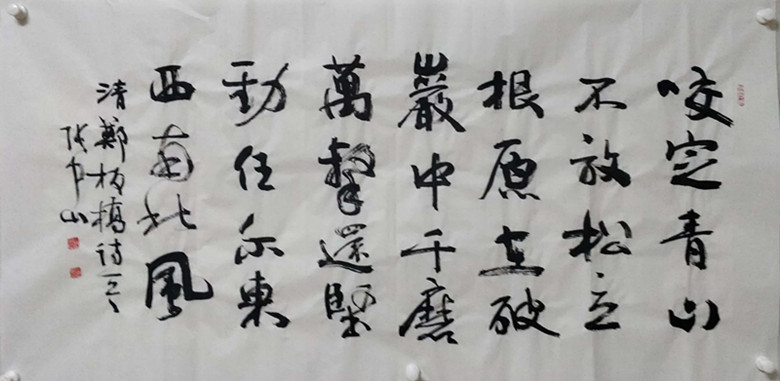 咬定青山
不放松立
根原在破
巖中千磨
萬擊還堅
勁任尔東
西南北風
清鄭板橋詩一首
张山